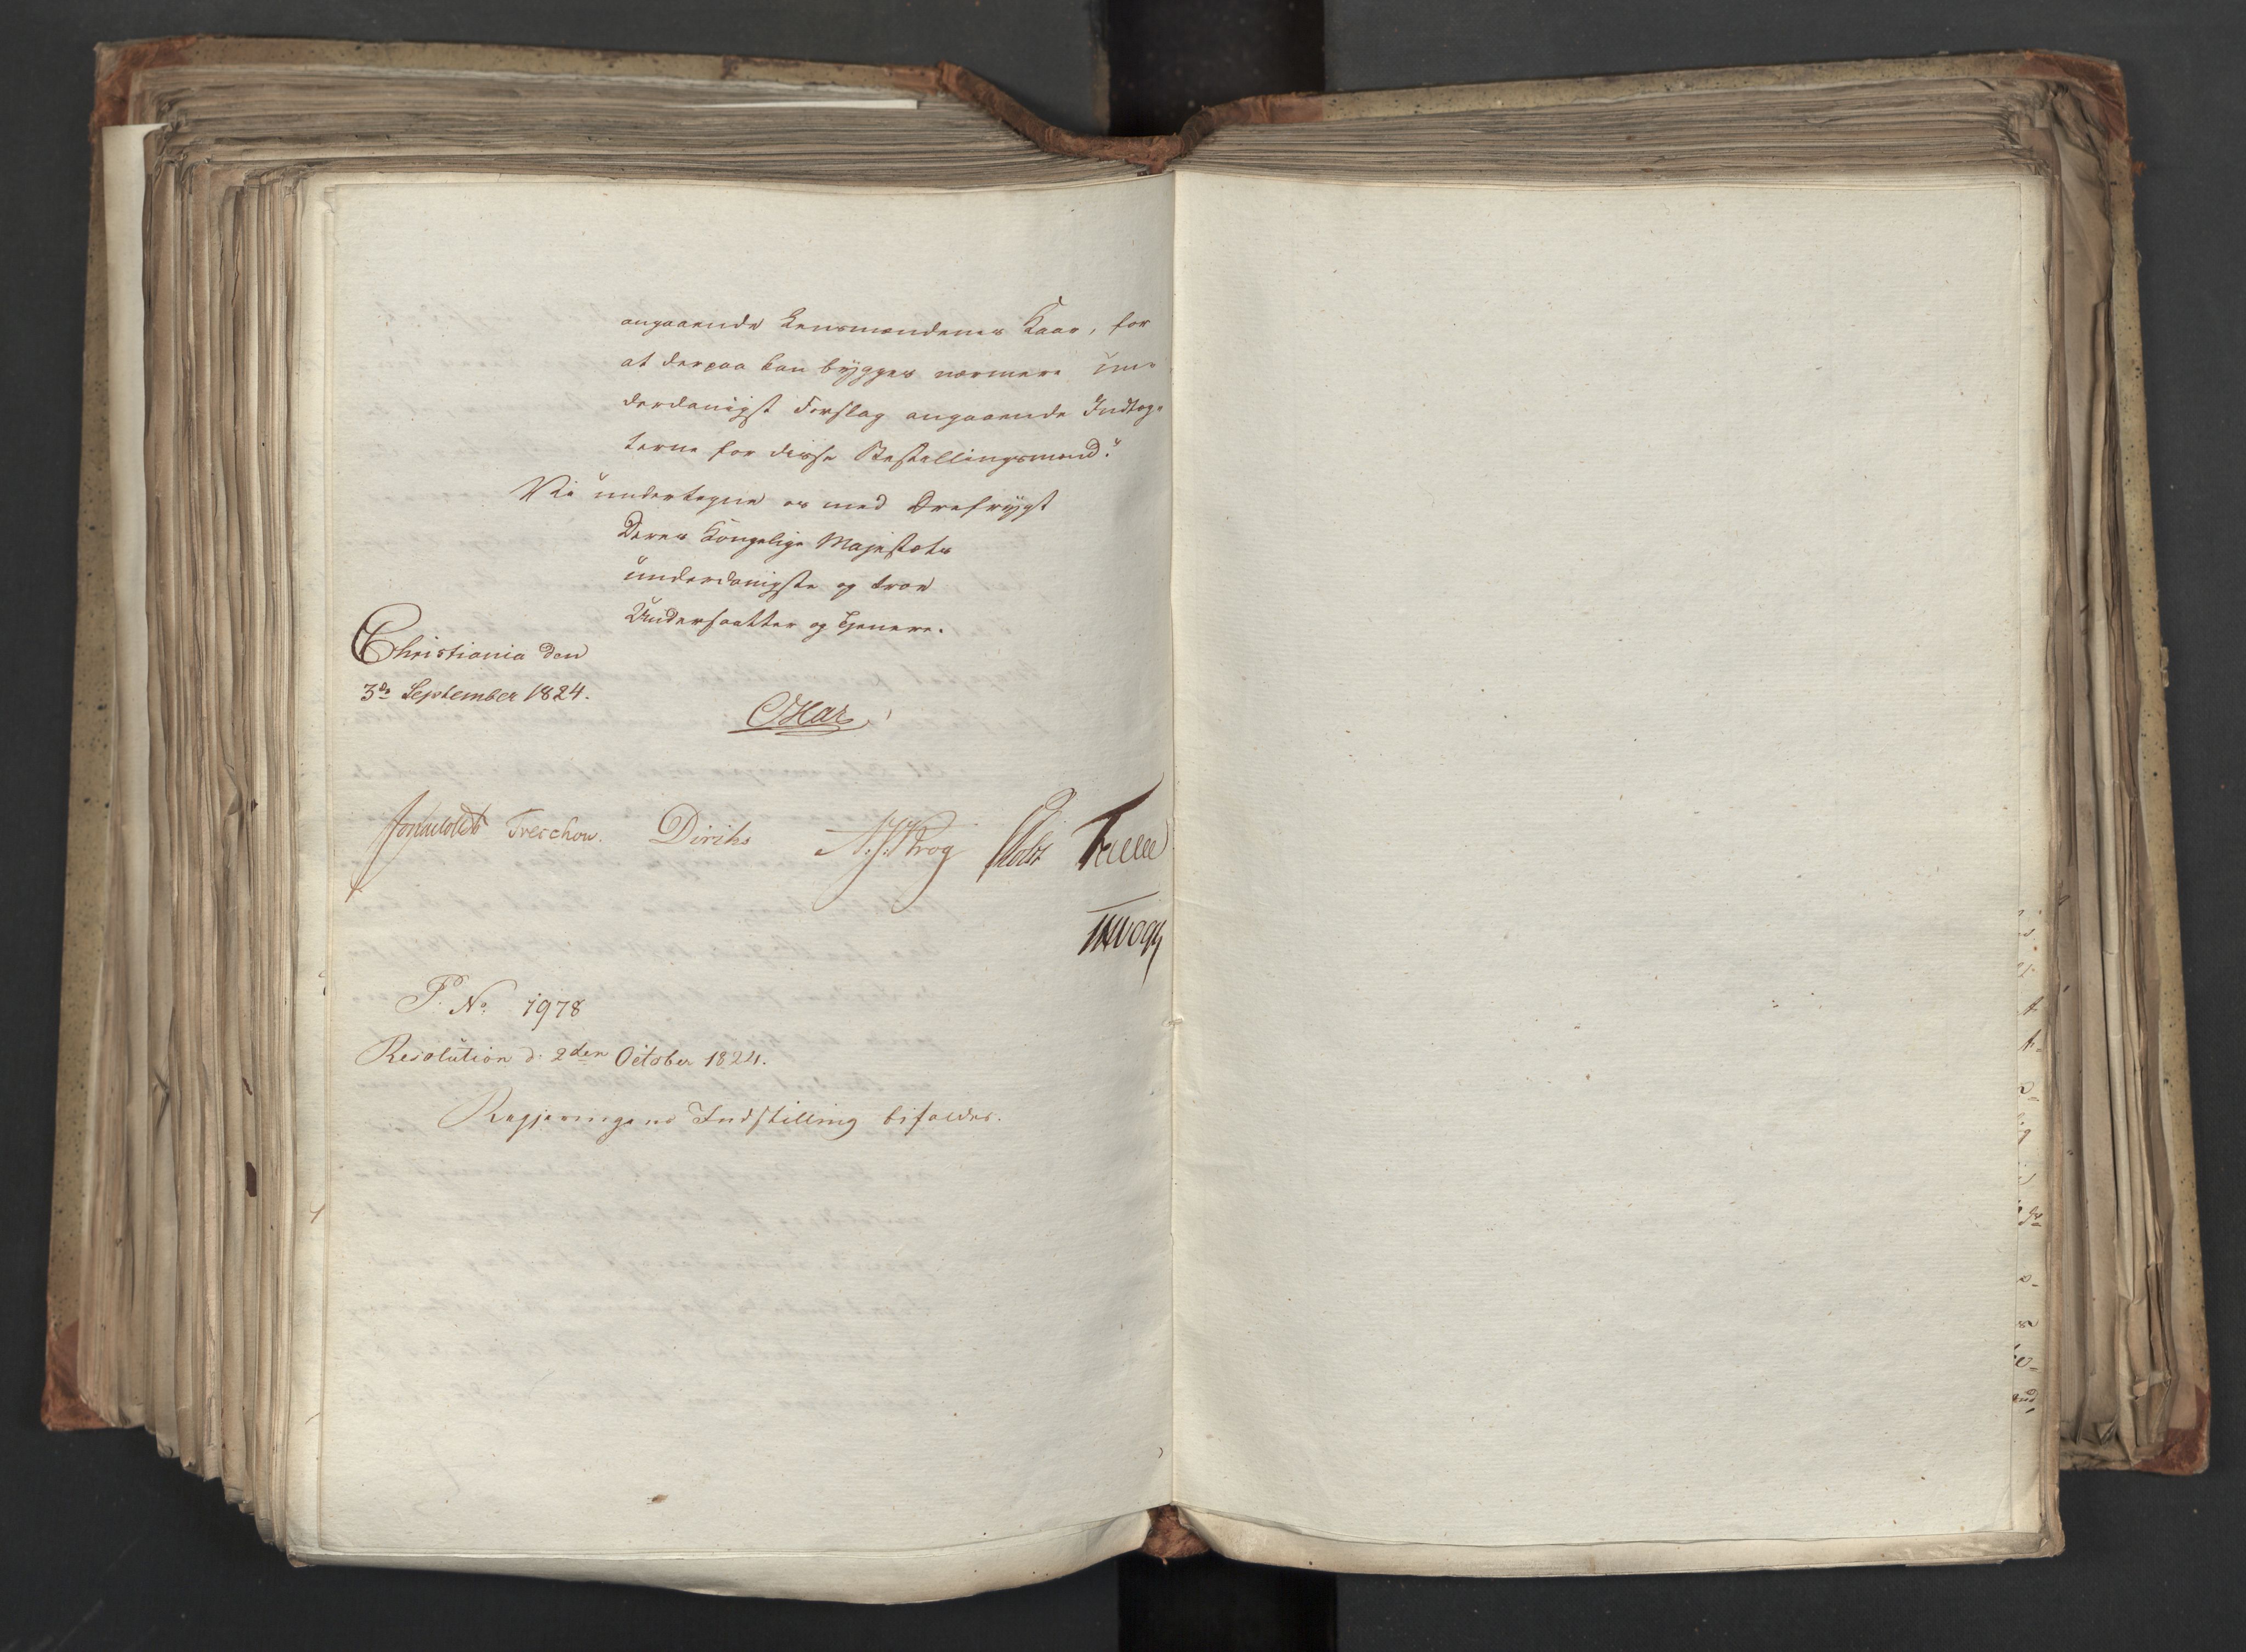 angaaende Lensmændenes Kaar, for
at derpaa kan bygges nærmere un-
derdanigst Forslag angaaende Indtæg-
terne for disse Bestillingsmænd."
Vi undertegne os med Ærefrygt
Deres Kongelige Majestæts
underdanigste og troe
Undersaatter og Tjenere.
Christiania den
3de September 1824.
Oskar
Sommerhjelm Treschow. Diriks N. J. Krog Holst Fasting
JH Vogt
P. No. 1978
Resolution d. 2den October 1824.
Regjeringens Indstilling bifaldes.